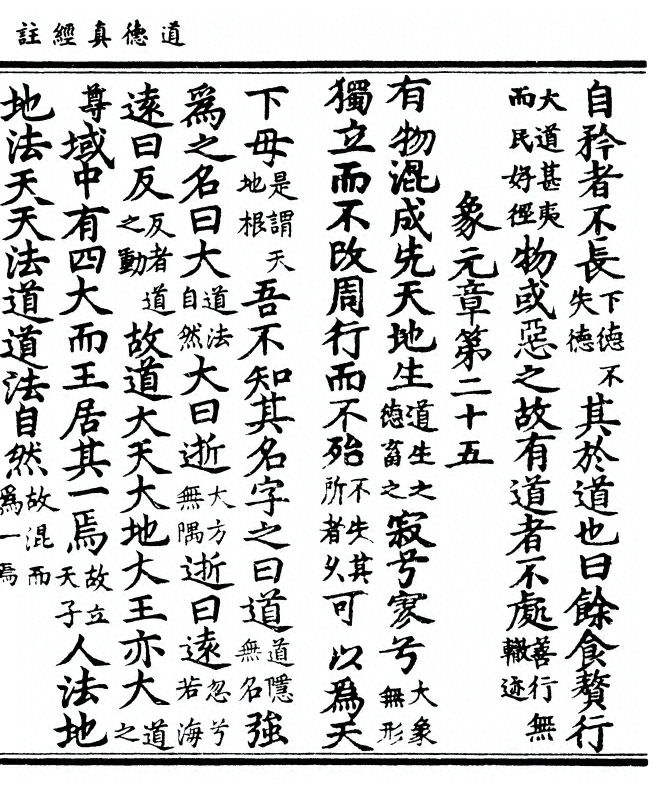 道德真經註
自矜者不長下德不失德其於道也曰餘食贅行
大道甚夷而民好徑物或惡之故有道者不處善行無轍迹
象元章第二十五
有物混成先天地生道生之德畜之寂兮寥兮大象無形
獨立而不改周行而不殆不失其所者久可以爲天
下母是謂天地根吾不知其名字之曰道道隱無名強
爲之名曰大道法自然大曰逝大方無隅逝曰遠忽兮若海
遠曰反反者道之動故道大天大地大王亦大道之
尊域中有四大而王居其一焉故立天子人法地
地法天天法道道法自然故混而爲一焉